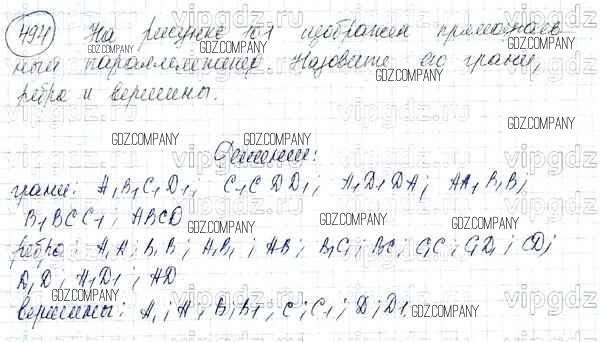 494 На рисунке 101 изображен прямоуголь
ный параллелепипед. Назовите его грани,
ребра и вершины.
Решение:
грани: A₁B₁C₁D₁; C₁CDD₁; A₁D₁DA; AA₁B₁B;
B₁BCC₁; ABCD
ребра: A₁A; B₁B; A₁B₁; AB; B₁C₁; BC; C₁C; C₁D₁; CD;
D₁D; A₁D₁; AD
вершины: A₁; A; B; B₁; C; C₁; D; D₁
GDZ.COMPANY
vipgdz